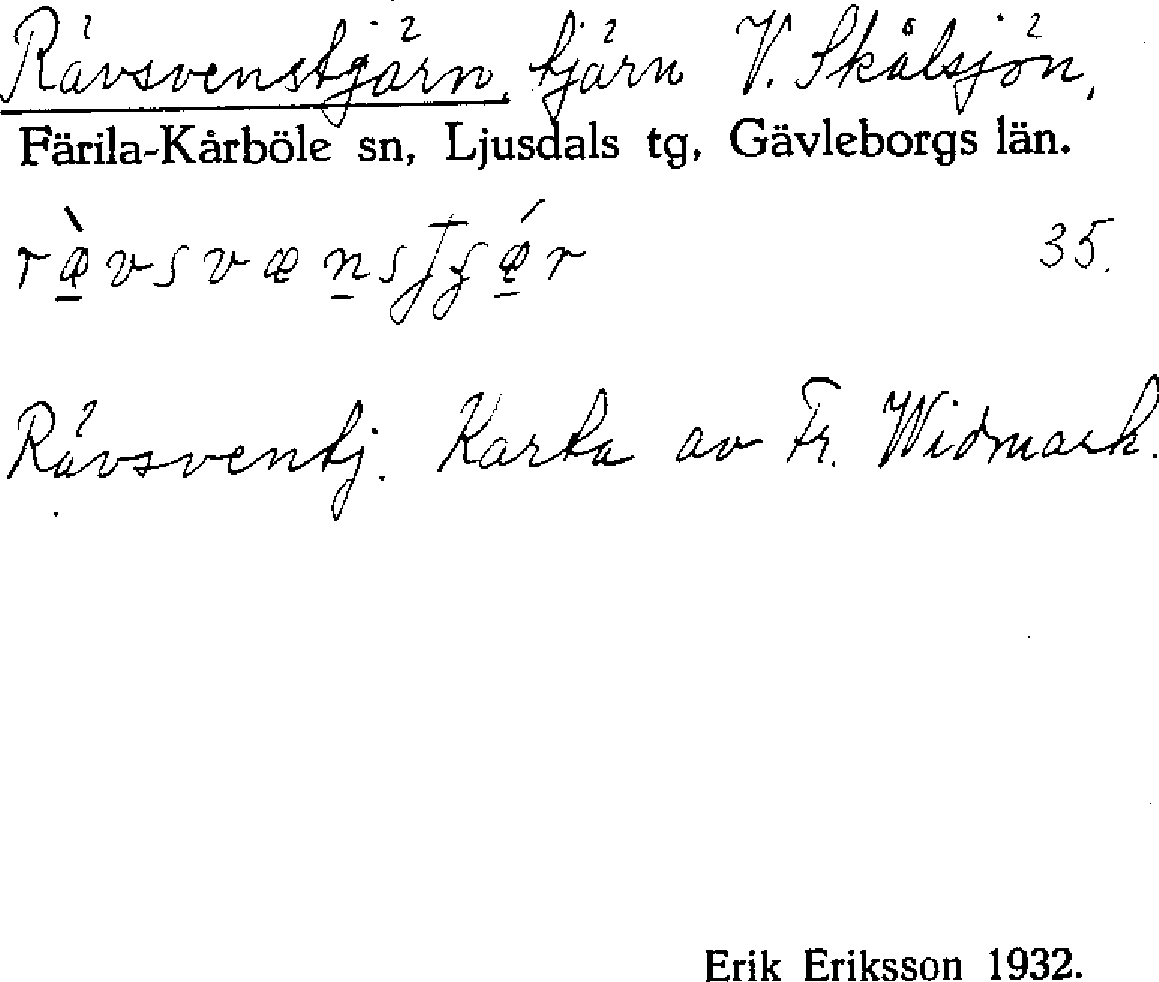 Rävsvenstjärn, tjärn V. Skålsjön,
Färila-Kårböle sn, Ljusdals tg, Gävleborgs län.
35.
Rävsventj. Karta av Fr. Widmark.
Erik Eriksson 1932.